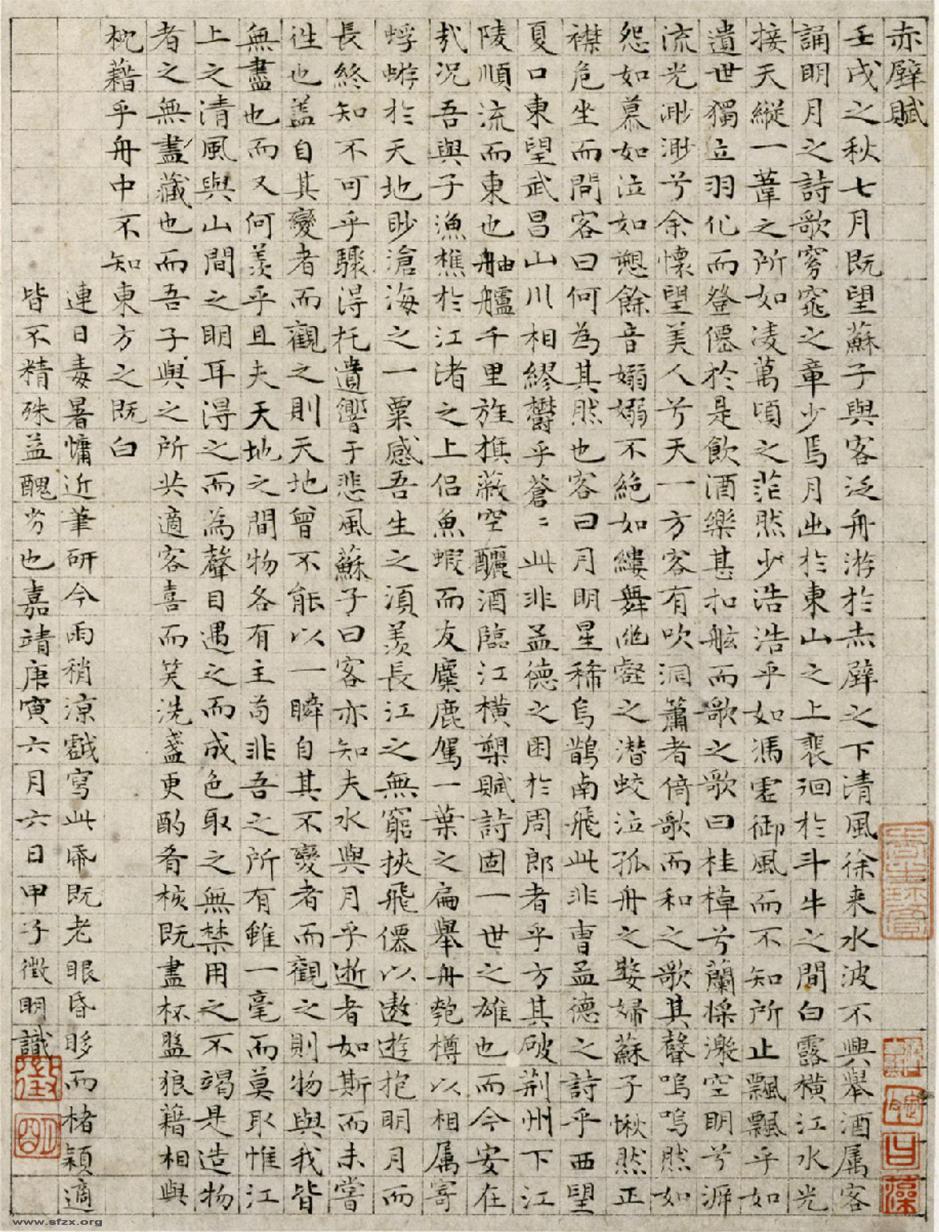 赤壁賦
壬戌之秋七月既望蘇子與客泛舟游於赤壁之下清風徐来水波不興舉酒属客
誦明月之詩歌窈窕之章少焉月出於東山之上裴洄於斗牛之間白露横江水光
接天縱一葦之所如凌萬頃之茫然少浩浩乎如馮虛御風而不知所止飄飄乎如
遺世獨立羽化而登僊於是飲酒樂甚扣舷而歌之歌曰桂棹兮蘭槳激空明兮泝
流光渺渺兮余懷望美人兮天一方客有吹洞簫者倚歌而和之歌其聲嗚嗚然如
怨如慕如泣如愬餘音嫋嫋不絶如縷舞幽壑之潜蛟泣孤舟之嫠婦蘇子愀然正
襟危坐而問客曰何為其然也客曰月明星稀烏鵲南飛此非曹孟德之詩乎西望
夏口東望武昌山川相繆鬱乎蒼〻此非孟德之困於周郎者乎方其破荆州下江
陵順流而東也舳艫千里旌旗蔽空釃酒臨江横槊賦詩固一世之雄也而今安在
哉况吾與子漁樵於江渚之上侣魚蝦而友麋鹿駕一葉之扁舉舟匏樽以相属寄
蜉蝣於天地眇滄海之一粟感吾生之須羨長江之無窮挾飛僊以遨遊抱明月而
長終知不可乎驟得托遺響于悲風蘇子曰客亦知夫水與月乎逝者如斯而未嘗
往也盖自其變者而觀之則天地曾不能以一瞬自其不變者而觀之則物與我皆
無盡也而又何羨乎且夫天地之間物各有主苟非吾之所有雖一毫而莫取惟江
上之清風與山間之明耳得之而為聲目遇之而成色取之無禁用之不竭是造物
者之無盡藏也而吾子與之所共適客喜而笑洗盞更酌肴核既盡杯盤狼籍相與
枕藉乎舟中不知東方之既白
連日毒暑慵近筆研今雨稍涼戲寫此帋既老眼昏眵而楮穎適
皆不精殊益醜劣也嘉靖庚寅六月六日甲子徵明識
徵
明
www.sfzx.org